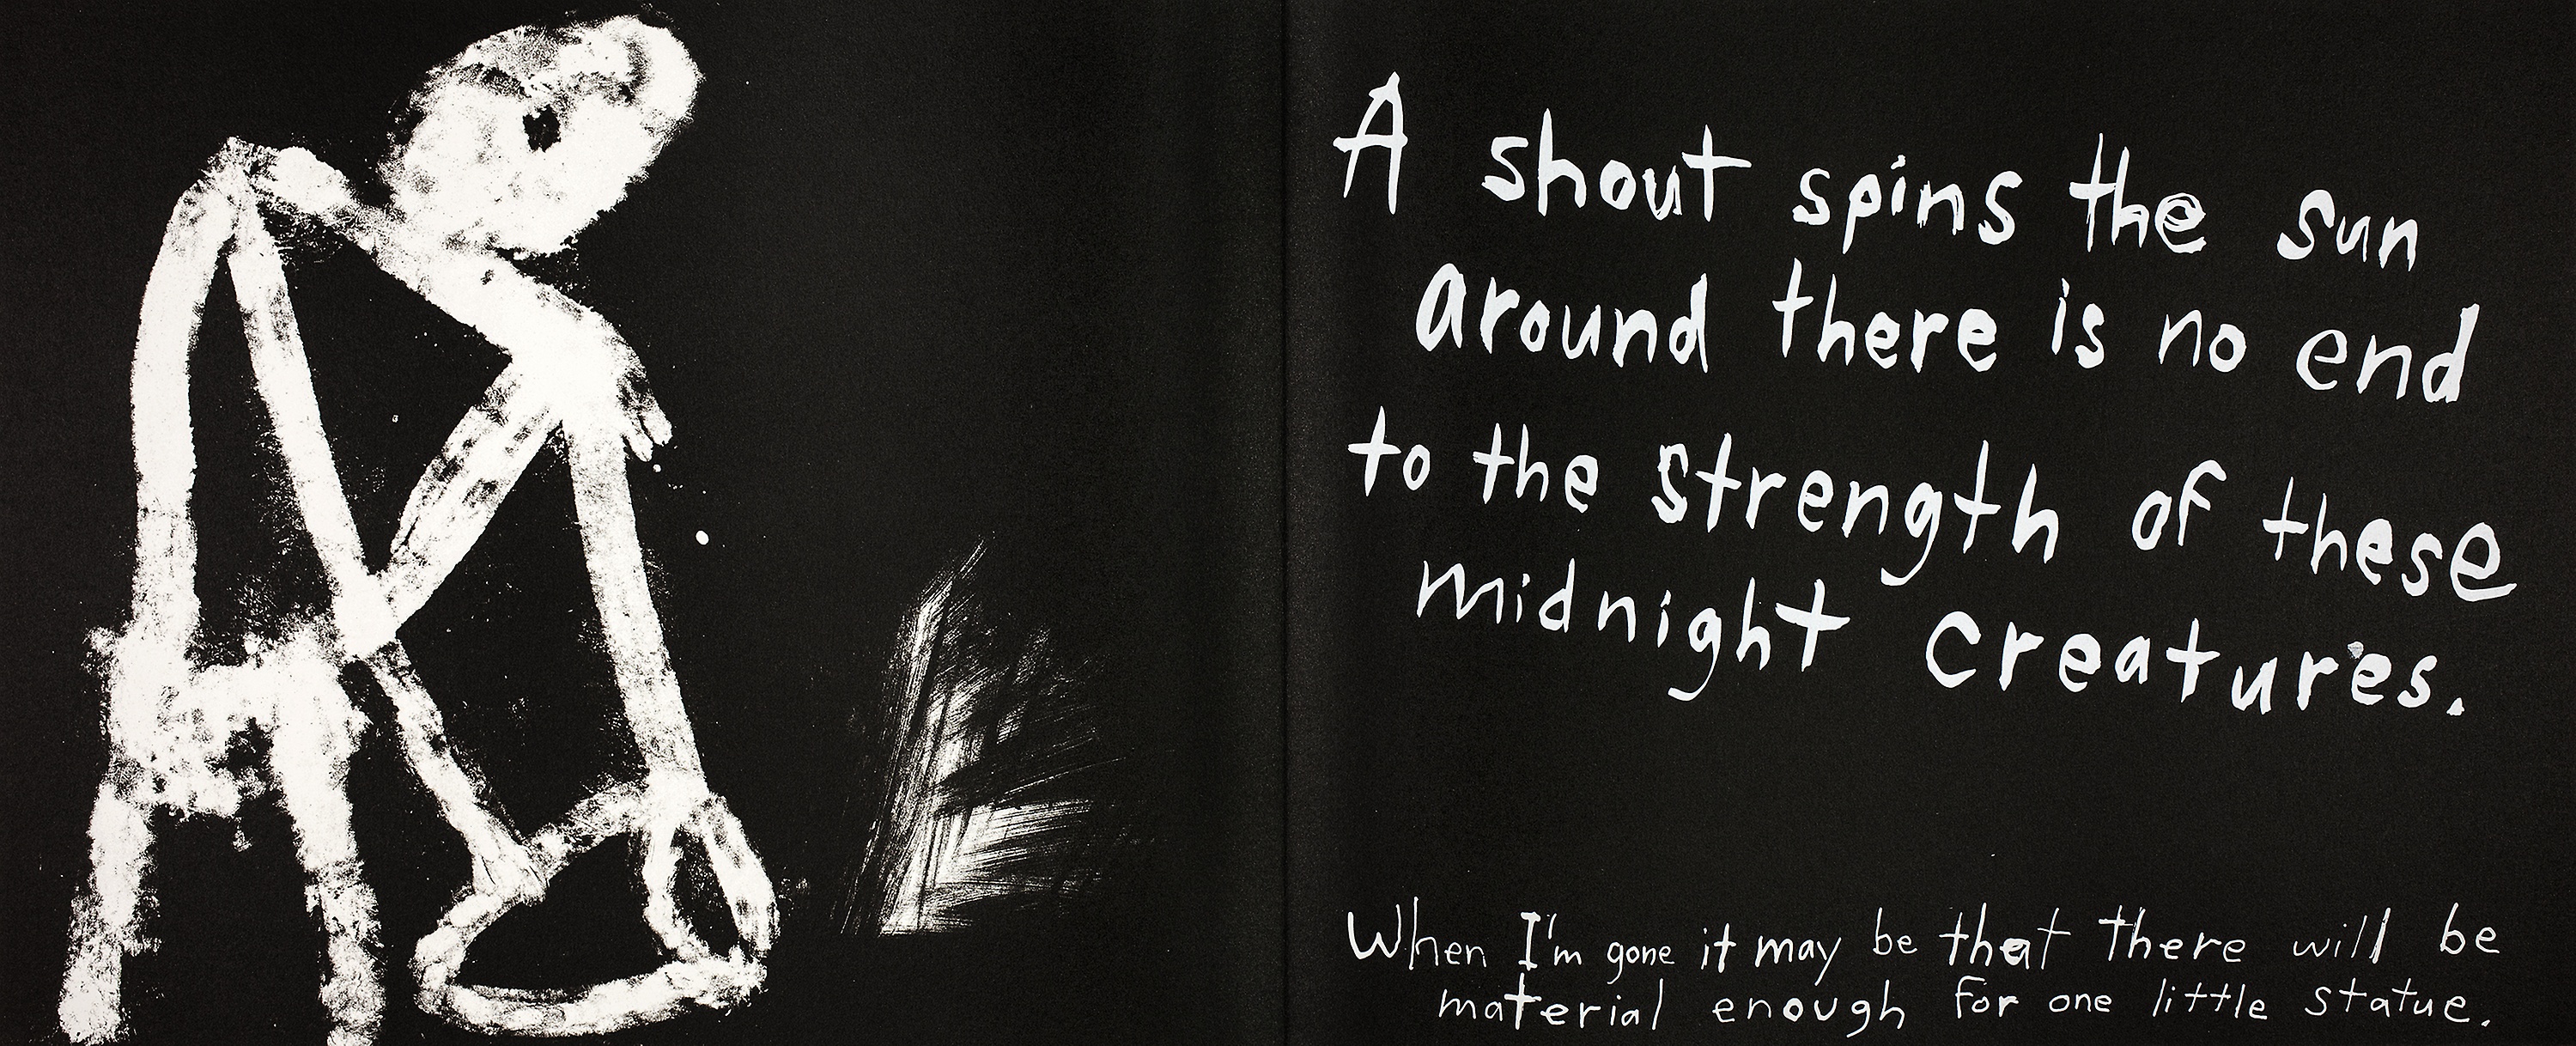 A shout spins the sun
around there is no end
to the strength of these
midnight creatures.
When I'm gone it may be that there will be
material enough for one little statue.